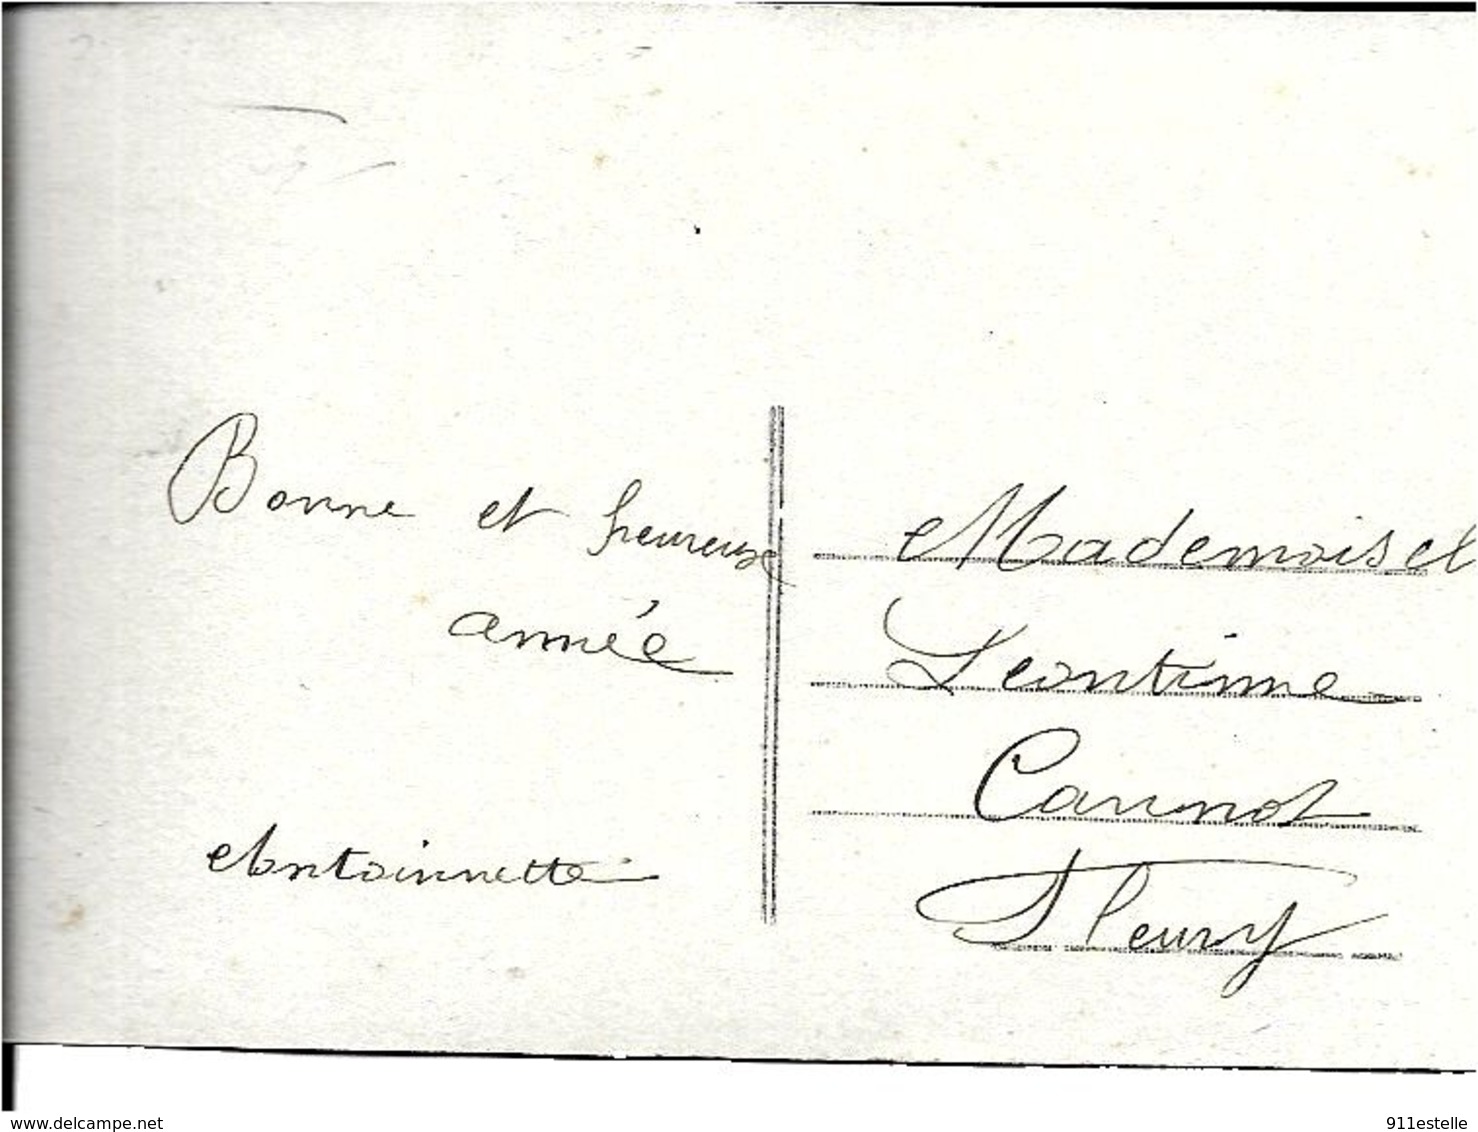 Bonne et heureuse
année
Antoinnette
Mademoisel
Leontinne
Carinot
Fleury
www.delcampe.net
911estelle